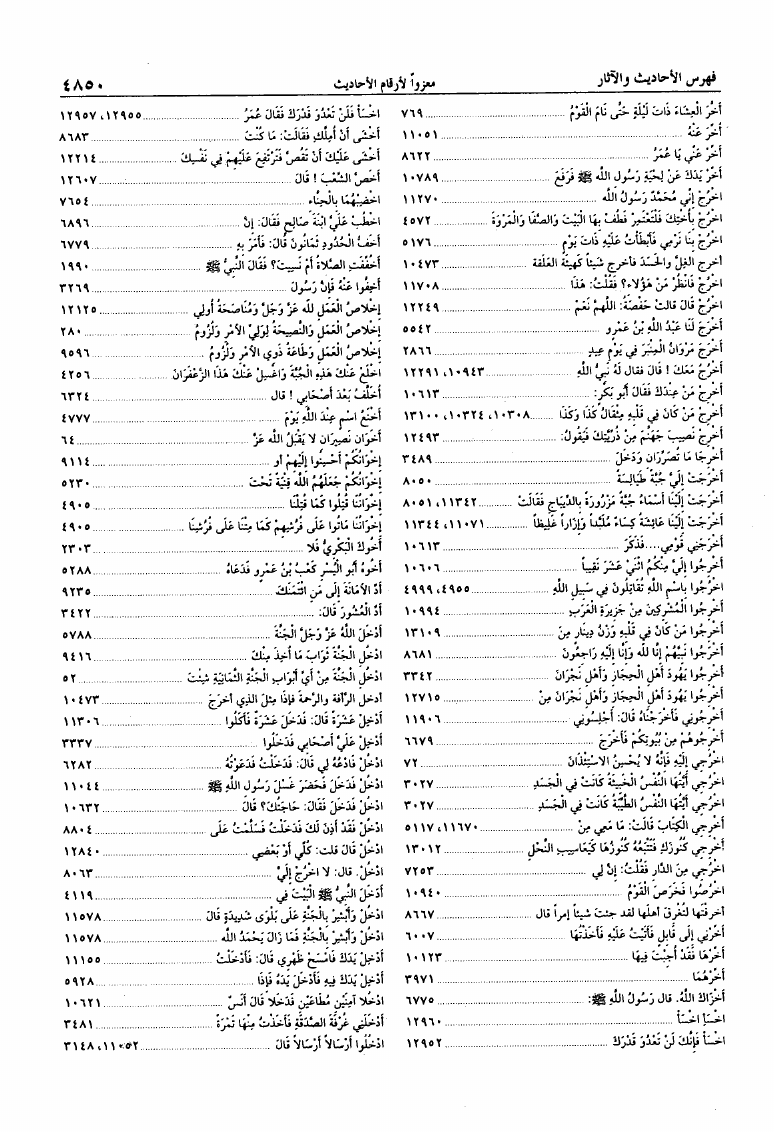 فهرس الأحاديث والآثار
معزواً لأرقام الأحاديث
٤٨٥٠
أَخَّرَ الْعِشَاءَ ذَاتَ لَيْلَةٍ حَتَّى نَامَ الْقَوْمُ ٧٦٩
أَخِّرْ عَنْهُ ١١٠٥١
أَخِّرْ عَنِّي يَا عُمَرُ ٨٦٢٢
أَخِّرْ يَدَكَ عَنْ لِحْيَةِ رَسُولِ اللَّهِ ﷺ فَرَفَعَ ١٠٧٨٩
اخْرُجْ إِنِّي مُحَمَّدٌ رَسُولُ اللَّه ١١٢٧٠
اخْرُجْ بِأُخْتِكَ فَلْتَعْتَمِرْ فَطُفْ بِهَا الْبَيْتَ وَالصَّفَا وَالْمَرْوَةَ ٤٥٧٢
اخْرُجْ بِنَا نَرْمِي فَأَبْطَأْتُ عَلَيْهِ ذَاتَ يَوْمٍ ٥١٧٦
اخرج الغِلَّ والحَسَدَ فأخرج شيئاً كَهَيْئَةِ العَلَقَة ١٠٤٧٣
اخْرُجْ فَانْظُرْ مَنْ هَؤُلَاءِ؟ فَقُلْتُ: هَذَا ١١٧٠٨
اخْرُجْ قَالَ قالت حَفْصَةُ: اللهمَّ نَعَمْ ١٢٢٤٩
أَخْرَجَ لَنَا عَبْدُ اللَّهِ بْنُ عَمْرٍو ٥٥٤٢
أَخْرَجَ مَرْوَانُ الْمِنْبَرَ فِي يَوْمِ عِيدٍ ٢٨٦٦
أَخْرُجُ مَعَكَ ! قَالَ فقال لَهُ نَبِيُّ اللَّهِ ١٠٩٤٣، ١٢٢٩١
أَخْرِجْ مَنْ عِنْدَكَ فَقَالَ أَبُو بَكْرٍ: ١٠٦١٣
أَخْرِجْ مَنْ كَانَ فِي قَلْبِهِ مِثْقَالُ كَذَا وَكَذَا ١٠٣٠٨، ١٠٣٢٤، ١٣١٠٠
أَخْرِجْ نَصِيبَ جَهَنَّمَ مِنْ ذُرِّيَّتِكَ فَيَقُولُ: ١٢٤٩٣
أَخْرِجَا مَا تُصَرِّرَانِ وَدَخَلَ ٣٤٨٩
أَخْرَجَتْ إِلَيَّ جُبَّةً طَيَالِسَةً ٨٠٥٠
أَخْرَجَتْ إِلَيْنَا أَسْمَاءُ جُبَّةً مَزْرُورَةً بِالدِّيبَاجِ فَقَالَتْ ١١٣٤٢، ٨٠٥١
أَخْرَجَتْ إِلَيْنَا عَائِشَةُ كِسَاءً مُلَبَّداً وَإِزَاراً غَلِيظاً ١١٠٧١، ١١٣٤٤
أَخْرَجَنِي قَوْمِي.... فَذَكَرَ ١٠٦١٣
أَخْرِجُوا إِلَيَّ مِنْكُمْ اثْنَيْ عَشَرَ نَقِيباً ١٠٦٠٦
اخْرُجُوا بِاسْمِ اللَّهِ تُقَاتِلُونَ فِي سَبِيلِ اللَّهِ ٤٩٥٥، ٤٩٩٩
أَخْرِجُوا الْمُشْرِكِينَ مِنْ جَزِيرَةِ الْعَرَبِ ١٠٩٩٤
أَخْرِجُوا مَنْ كَانَ فِي قَلْبِهِ وَزْنُ دِينَارٍ مِنَ ١٣١٠٩
أَخْرَجُوا نَبِيَّهُمْ إِنَّا لله وَإِنَّا إِلَيْهِ رَاجِعُونَ ٨٦٨١
أَخْرِجُوا يَهُودَ أَهْلِ الْحِجَازِ وَأَهْلِ نَجْرَانَ ٣٣٤٢
أَخْرِجُوا يَهُودَ أَهْلِ الْحِجَازِ وَأَهْلِ نَجْرَانَ مِنْ ١٢٧١٥
أَخْرِجُونِي فَأَخْرَجْنَاهُ قَالَ: أَجْلِسُونِي ١١٩٠٦
أَخْرِجُوهُمْ مِنْ بُيُوتِكُمْ فَأَخْرَجَ ٦٦٧٩
اخْرُجِي إِلَيْهِ فَإِنَّهُ لَا يُحْسِنُ الاسْتِئْذَانَ ٧٢
اخْرُجِي أَيَّتُهَا النَّفْسُ الْخَبِيثَةُ كَانَتْ فِي الْجَسَدِ ٣٠٢٧
اخْرُجِي أَيَّتُهَا النَّفْسُ الطَّيِّبَةُ كَانَتْ فِي الْجَسَدِ ٣٠٢٧
أَخْرِجِي الْكِتَابَ قَالَتْ: مَا مَعِي مِنْ ١١٦٧٠، ٥١١٧
أَخْرِجِي كُنُوزَكِ فَتَتْبَعُهُ كُنُوزُهَا كَيَعَاسِيبِ النَّحْلِ ١٣٠١٢
أَخْرِجِي مِنَ الدَّارِ فَقُلْتُ: إِنَّ لِي ٧٢٥٣
اخْرُصُوا فَخَرَصَ الْقَوْمُ ١٠٩٤٠
أخرقتها لتُغْرِقَ أهلها لقد جئتَ شيئاً إمراً قال ٨٦٦٧
أَخِّرْنِي إِلَى قَابِلٍ فَأَتَيْتُ عَلَيْهِ فَأَخَذْتُهَا ٦٠٠٧
أَخِّرْهَا فَقَدْ أُجِبْتَ فِيهَا ١٠١٢٣
أَخِّرْهُمَا ٣٩٧١
أَخْزَاكَ اللَّهُ. قال رَسُولُ اللَّهِ ﷺ: ٦٧٧٥
اخْسَأِ اخْسَأْ ١٢٩٦٠
اخْسَأْ فَإِنَّكَ لَنْ تَعْدُوَ قَدْرَكَ ١٢٩٥٢
اخْسَأْ فَلَنْ تَعْدُوَ قَدْرَكَ فَقَالَ عُمَرُ ١٢٩٥٥، ١٢٩٥٧
أَخْشَى أَنْ أُمِلَّكِ فَقَالَتْ: مَا كُنْتَ ٨٦٨٣
أَخْشَى عَلَيْكَ أَنْ تَقُصَّ فَتَرْتَفِعَ عَلَيْهِمْ فِي نَفْسِكَ ١٢٢١٤
أَخَصُّ الشُّغْبِ ! قَالَ ١٢٦٠٧
اخْضِبْهُمَا بِالْحِنَّاءِ ٧٦٥٤
اخْطُبْ عَلَيَّ ابْنَةَ صَالِحٍ فَقَالَ: إِنَّ ٦٨٩٦
أَخَفُّ الْحُدُودِ ثَمَانُونَ قَالَ: فَأَمَرَ بِهِ ٦٧٧٩
أَخُفِّفَتِ الصَّلَاةُ أَمْ نَسِيتَ؟ فَقَالَ النَّبِيُّ ﷺ ١٩٩٠
أَخِّفُوا عَنْهُ فَإِنَّ رَسُولَ ٣٢٦٩
إِخْلَاصُ الْعَمَلِ لله عَزَّ وَجَلَّ وَمُنَاصَحَةُ أُولِي ١٢١٢٥
إِخْلَاصُ الْعَمَلِ وَالنَّصِيحَةُ لِوَلِيِّ الأَمْرِ وَلُزُومُ ٢٨٠
إِخْلَاصُ الْعَمَلِ وَطَاعَةُ ذَوِي الأَمْرِ وَلُزُومُ ٩٥٩٦
اخْلَعْ عَنْكَ هَذِهِ الْجُبَّةَ وَاغْسِلْ عَنْكَ هَذَا الزَّعْفَرَانَ ٤٢٥٦
أُخَلَّفُ بَعْدَ أَصْحَابِي ! قال ٦٣٢٤
أَخْنَعُ اسْمٍ عِنْدَ اللَّهِ يَوْمَ ٤٧٧٧
أَخَوَانِ نَصِيرَانِ لا يَقْبَلُ اللَّه عَزَّ ٦٤
إِخْوَانُكُمْ أَحْسِنُوا إِلَيْهِمْ أَو ٩١١٤
إِخْوَانُكُمْ جَعَلَهُمُ اللَّهُ فِتْيَةً تَحْتَ ٥٢٣٠
إِخْوَانُنَا قُتِلُوا كَمَا قُتِلْنَا ٤٩٠٥
إِخْوَانُنَا مَاتُوا عَلَى فُرُشِهِمْ كَمَا مِتْنَا عَلَى فُرُشِنَا ٤٩٠٥
أَخُوكَ الْبَكْرِيُّ فَلَا ٢٣٠٣
أَخُوهُ أَبُو الْيَسَرِ كَعْبُ بْنُ عَمْرٍو فَدَعَاهُ ٥٢٨٨
أَدِّ الأَمَانَةَ إِلَى مَنِ ائْتَمَنَكَ ٩٢٣٥
أَدِّ الْعُشُورَ قَالَ: ٣٤٢٢
أَدْخَلَ اللَّهُ عَزَّ وَجَلَّ الْجَنَّةَ ٥٧٨٨
ادْخُلِ الْجَنَّةَ ثَوَابَ مَا أُخِذَ مِنْكَ ٩٤١٦
ادْخُلِ الْجَنَّةَ مِنْ أَيِّ أَبْوَابِ الْجَنَّةِ الثَّمَانِيَةِ شِئْتَ ٥٢
أدخل الرَّأْفَة والرَّحمة فإذا مثلُ الذي أخرَجَ ١٠٤٧٣
أَدْخِلْ عَشَرَةً قَالَ: فَدَخَلَ عَشَرَةٌ فَأَكَلُوا ١١٣٠٦
أَدْخِلْ عَلَيَّ أَصْحَابِي فَدَخَلُوا ٣٣٣٧
ادْخُلْ فَادْعُهُ لِي قَالَ: فَدَخَلْتُ فَدَعَوْتُهُ ٦٢٨٢
ادْخُلْ فَدَخَلَ فَحَضَرَ غَسْلَ رَسُولِ اللَّهِ ﷺ ١١٠٤٤
ادْخُلْ فَدَخَلَ فَقَالَ: حَاجَتَكَ؟ قَالَ ١٠٦٣٢
ادْخُلْ فَقَدْ أَذِنَ لَكَ فَدَخَلْتُ فَسَلَّمْتُ عَلَى ٨٨٠٤
ادْخُلْ قَالَ قلت: كُلِّي أَوْ بَعْضِي ١٢٨٤٠
ادْخُلْ. قال: لا اخْرُجْ إِلَيَّ ٨٠٦٣
أَدْخَلَ النَّبِيُّ ﷺ الْبَيْتَ فِي ٤١١٩
ادْخُلْ وَأَبْشِرْ بِالْجَنَّةِ عَلَى بَلْوَى شَدِيدَةٍ قَالَ ١١٥٧٨
ادْخُلْ وَأَبْشِرْ بِالْجَنَّةِ فَمَا زَالَ يَحْمَدُ اللَّه ١١٥٧٨
أَدْخِلْ يَدَكَ فَامْسَحْ ظَهْرِي قَالَ: فَأَدْخَلْتُ ١١١٥٥
أَدْخِلْ يَدَكَ فِيهِ فَأَدْخَلَ يَدَهُ فَإِذَا ٥٩٢٨
ادْخُلَا آمِنَيْنِ مُطَاعَيْنِ فَدَخَلَا قَالَ أَنَسٌ ١٠٦٢١
أَدْخَلَنِي غُرْفَةَ الصَّدَقَةِ فَأَخَذْتُ مِنْهَا تَمْرَةً ٣٤٨١
ادْخُلُوا أَرْسَالاً أَرْسَالاً قَالَ ١١٠٥٢، ٣١٤٨